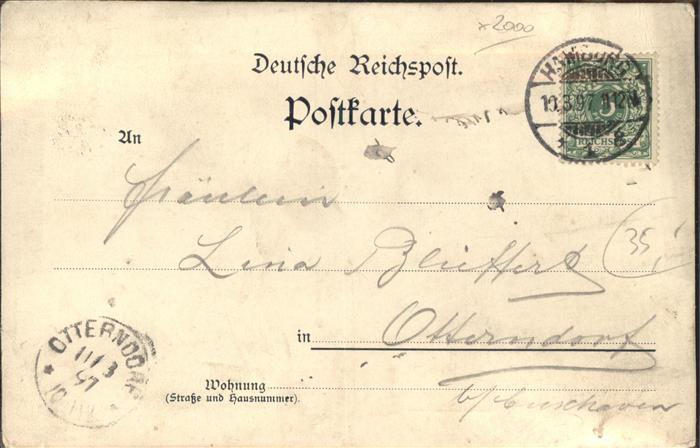 x2000
Deutsche Reichspost.
Postkarte.
HAMBURG
10.3.97. 1
1
5
REICHSPOST
An
Fräulein
Lina Blieffert
35,
in Otterndorf
OTTERNDORF
11/3
97
Wohnung
(Straße und Hausnummer).
b/Cuxhaven